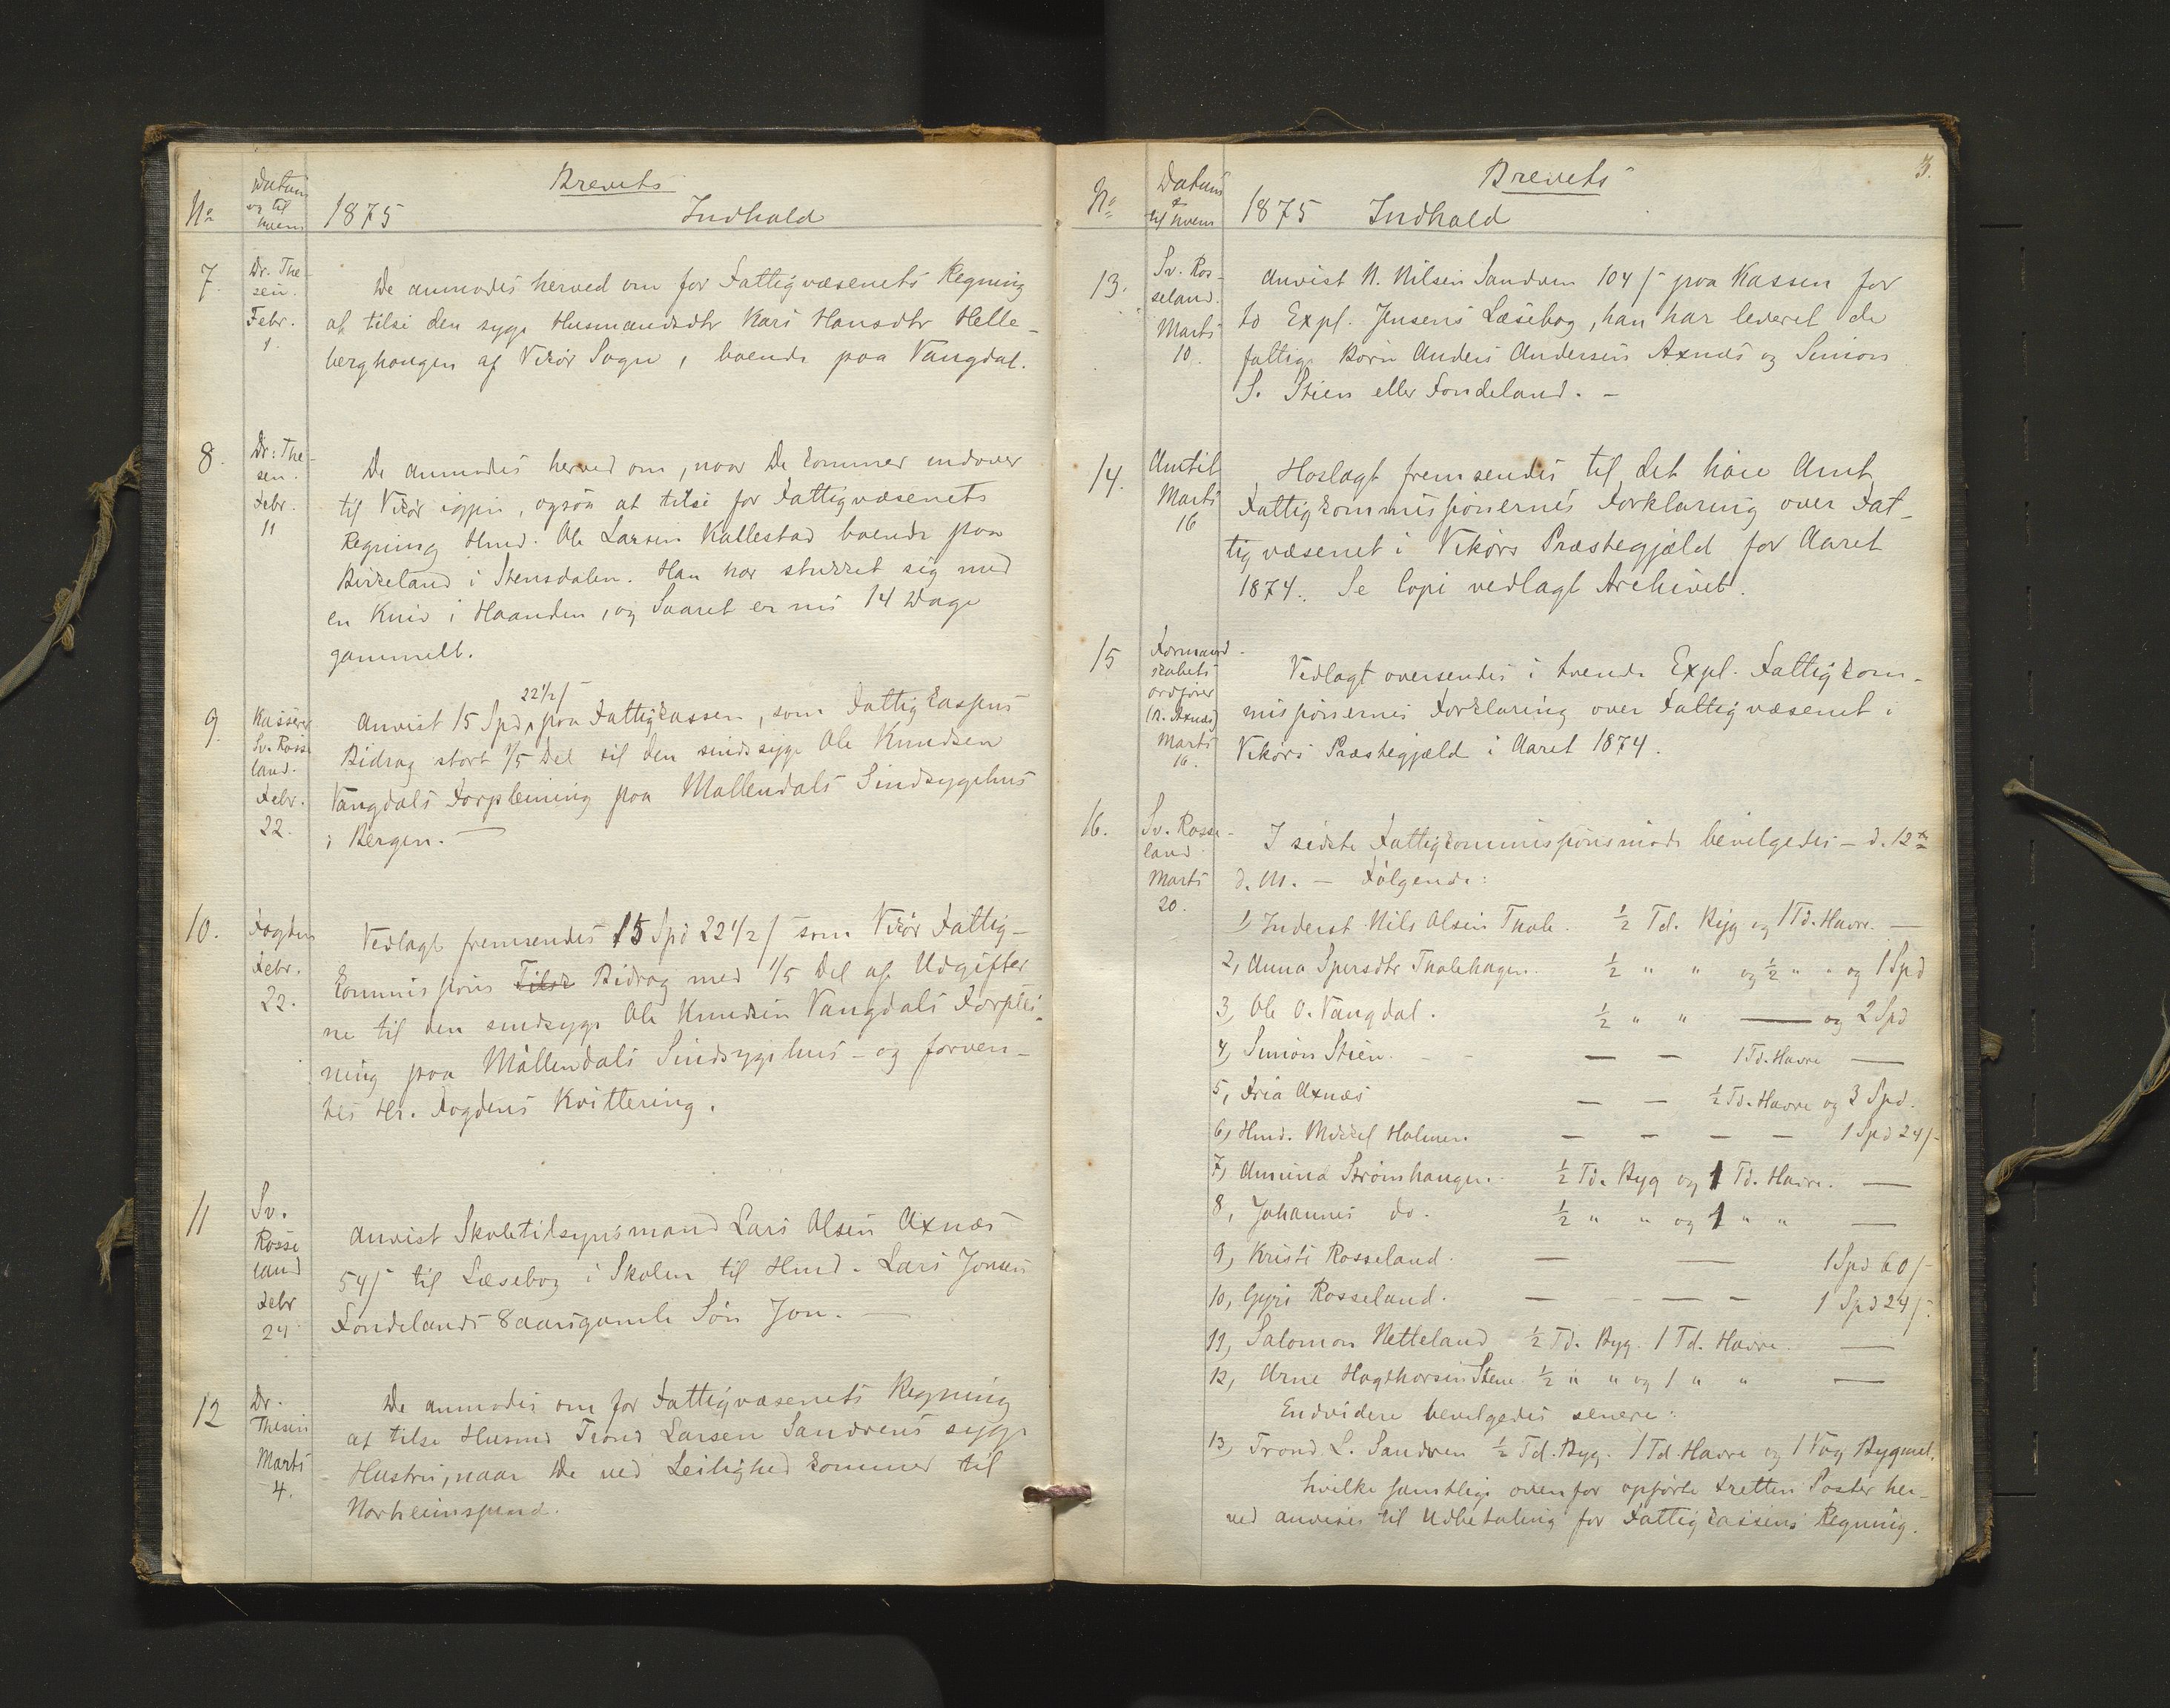 No
Datum
og til
hvem
1875
Brevets
Indhold
7.
Dr. The-
sen.
Febr.
1.
De anmodes herved om for Fattigvæsenets Regning
at tilse den syge Husmandsdtr Kari Hansdtr Helle-
berghougen af Vikør Sogn, boende paa Vangdal.
8.
Dr. The-
sen.
Febr.
11
De anmodes herved om, naar De kommer indover
til Vikør igjen, ogsaa at tilse for Fattigvæsenets
Regning Hmd. Ole Larsen Kallestad boende paa
Birkeland i Stensdalen. Han har stukket sig med
en Kniv i Haanden, og Saaret er nu 14 Dage
gammelt.
9.
Kasserer
Sv. Rosse
land.
Febr.
22.
22 1/2 ſ
Anvist 15 Spd, paa Fattigkassen, som Fattigkassens
Bidrag stort 1/5 Del til den sindssyge Ole Knudsen
Vangdals Forpleining paa Møllendals Sindsygehus
i Bergen. —
10.
Fogden
Febr.
22.
Vedlagt fremsendes 15 Spd 22 1/2 ſ som Vikør Fattig-
kommissions Tilsk Bidrag med 1/5 Del af Udgifter
ne til den sindsyge Ole Knudsen Vangdals Forplei-
ning paa Møllendals Sindsygehus - og forven-
tes Hr. Fogdens Kvittering.
11
Sv.
Rosse
land
Febr
24
Anvist Skoletilsynsmand Lars Olsen Axnæs
54 ſ til Læsebog i Skolen til Hmd. Lars Jonsen
Tondelands 8 aarsgamle Søn Jon. —
12
Dr.
Thesen
Marts
4.
De anmodes om for Fattigvæsenets Regning
at tilse Husmd Trond Larsen Sandvens syge
Hustru, naar De ved Leilighed kommer til
Norheimsund.
3.
No
Datum
&
til hvem
Brevets
1875 Indhold
13.
Sv. Ros-
seland.
Marts
10.
Anvist N. Nilsen Sandven 104 ſ paa Kassen for
to Expl. Jensens Læsebog, han har leveret de
fattige Børn Anders Andersen Axnæs og Simon
S. Stien eller Tondeland. -
14.
Amtet
Marts
16
Hoslagt fremsendes til det høie Amt
Fattigkommissionernes Forklaring over Fat-
tigvæsenet i Vikørs Præstegjæld for Aaret
1874. Se Copi vedlagt Archivet.
15
Formand-
skabets
Ordfører
(N. Axnæs)
Marts
16.
Vedlagt oversendes i tvende Expl. Fattigkom-
missionernes Forklaring over Fattigvæsenet i
Vikørs Præstegjæld i Aaret 1874.
16.
Sv. Rosse-
land
Marts
20.
I sidste Fattigkommissionsmøde bevilgedes - d. 12te
d. M. - Følgende:
1, Inderst Nils Olsen Thole. 1/2 Td. Byg og 1 Td. Havre. —
2, Anna Spersdtr Tholehagen. 1/2 " " og 1/2 " " og 1 Spd
3, Ole O. Vangdal. 1/2 " " — og 2 Spd
4, Simon Stien. - - — — 1 Td. Havre —
5, Fria Axnæs — — 1/2 Td. Havre og 3 Spd.
6, Hmd. Mikkel Holmen. — — — — 1 Spd 24 ſ
7, Amunda Strømhaugen. 1/2 Td. Byg og 1 Td. Havre. —
8, Johannes do. 1/2 " " og 1 " " —
9, Kristi Rosseland. — — 1 Spd 60 ſ
10, Gyri Rosseland. — — — 1 Spd 24 ſ.
11, Salomon Netteland 1/2 Td. Byg. 1 Td. Havre. —
12, Arne Hagthorsen Stene 1/2 " " og 1 " " —
Endvidere bevilgedes senere:
13, Trond L. Sandven 1/2 Td. Byg. 1 Td. Havre og 1 Vog Bygmel.
hvilke samtlige ovenfor opførte tretten Poster her-
ved anvises til Udbetaling for Fattigkassens Regning.